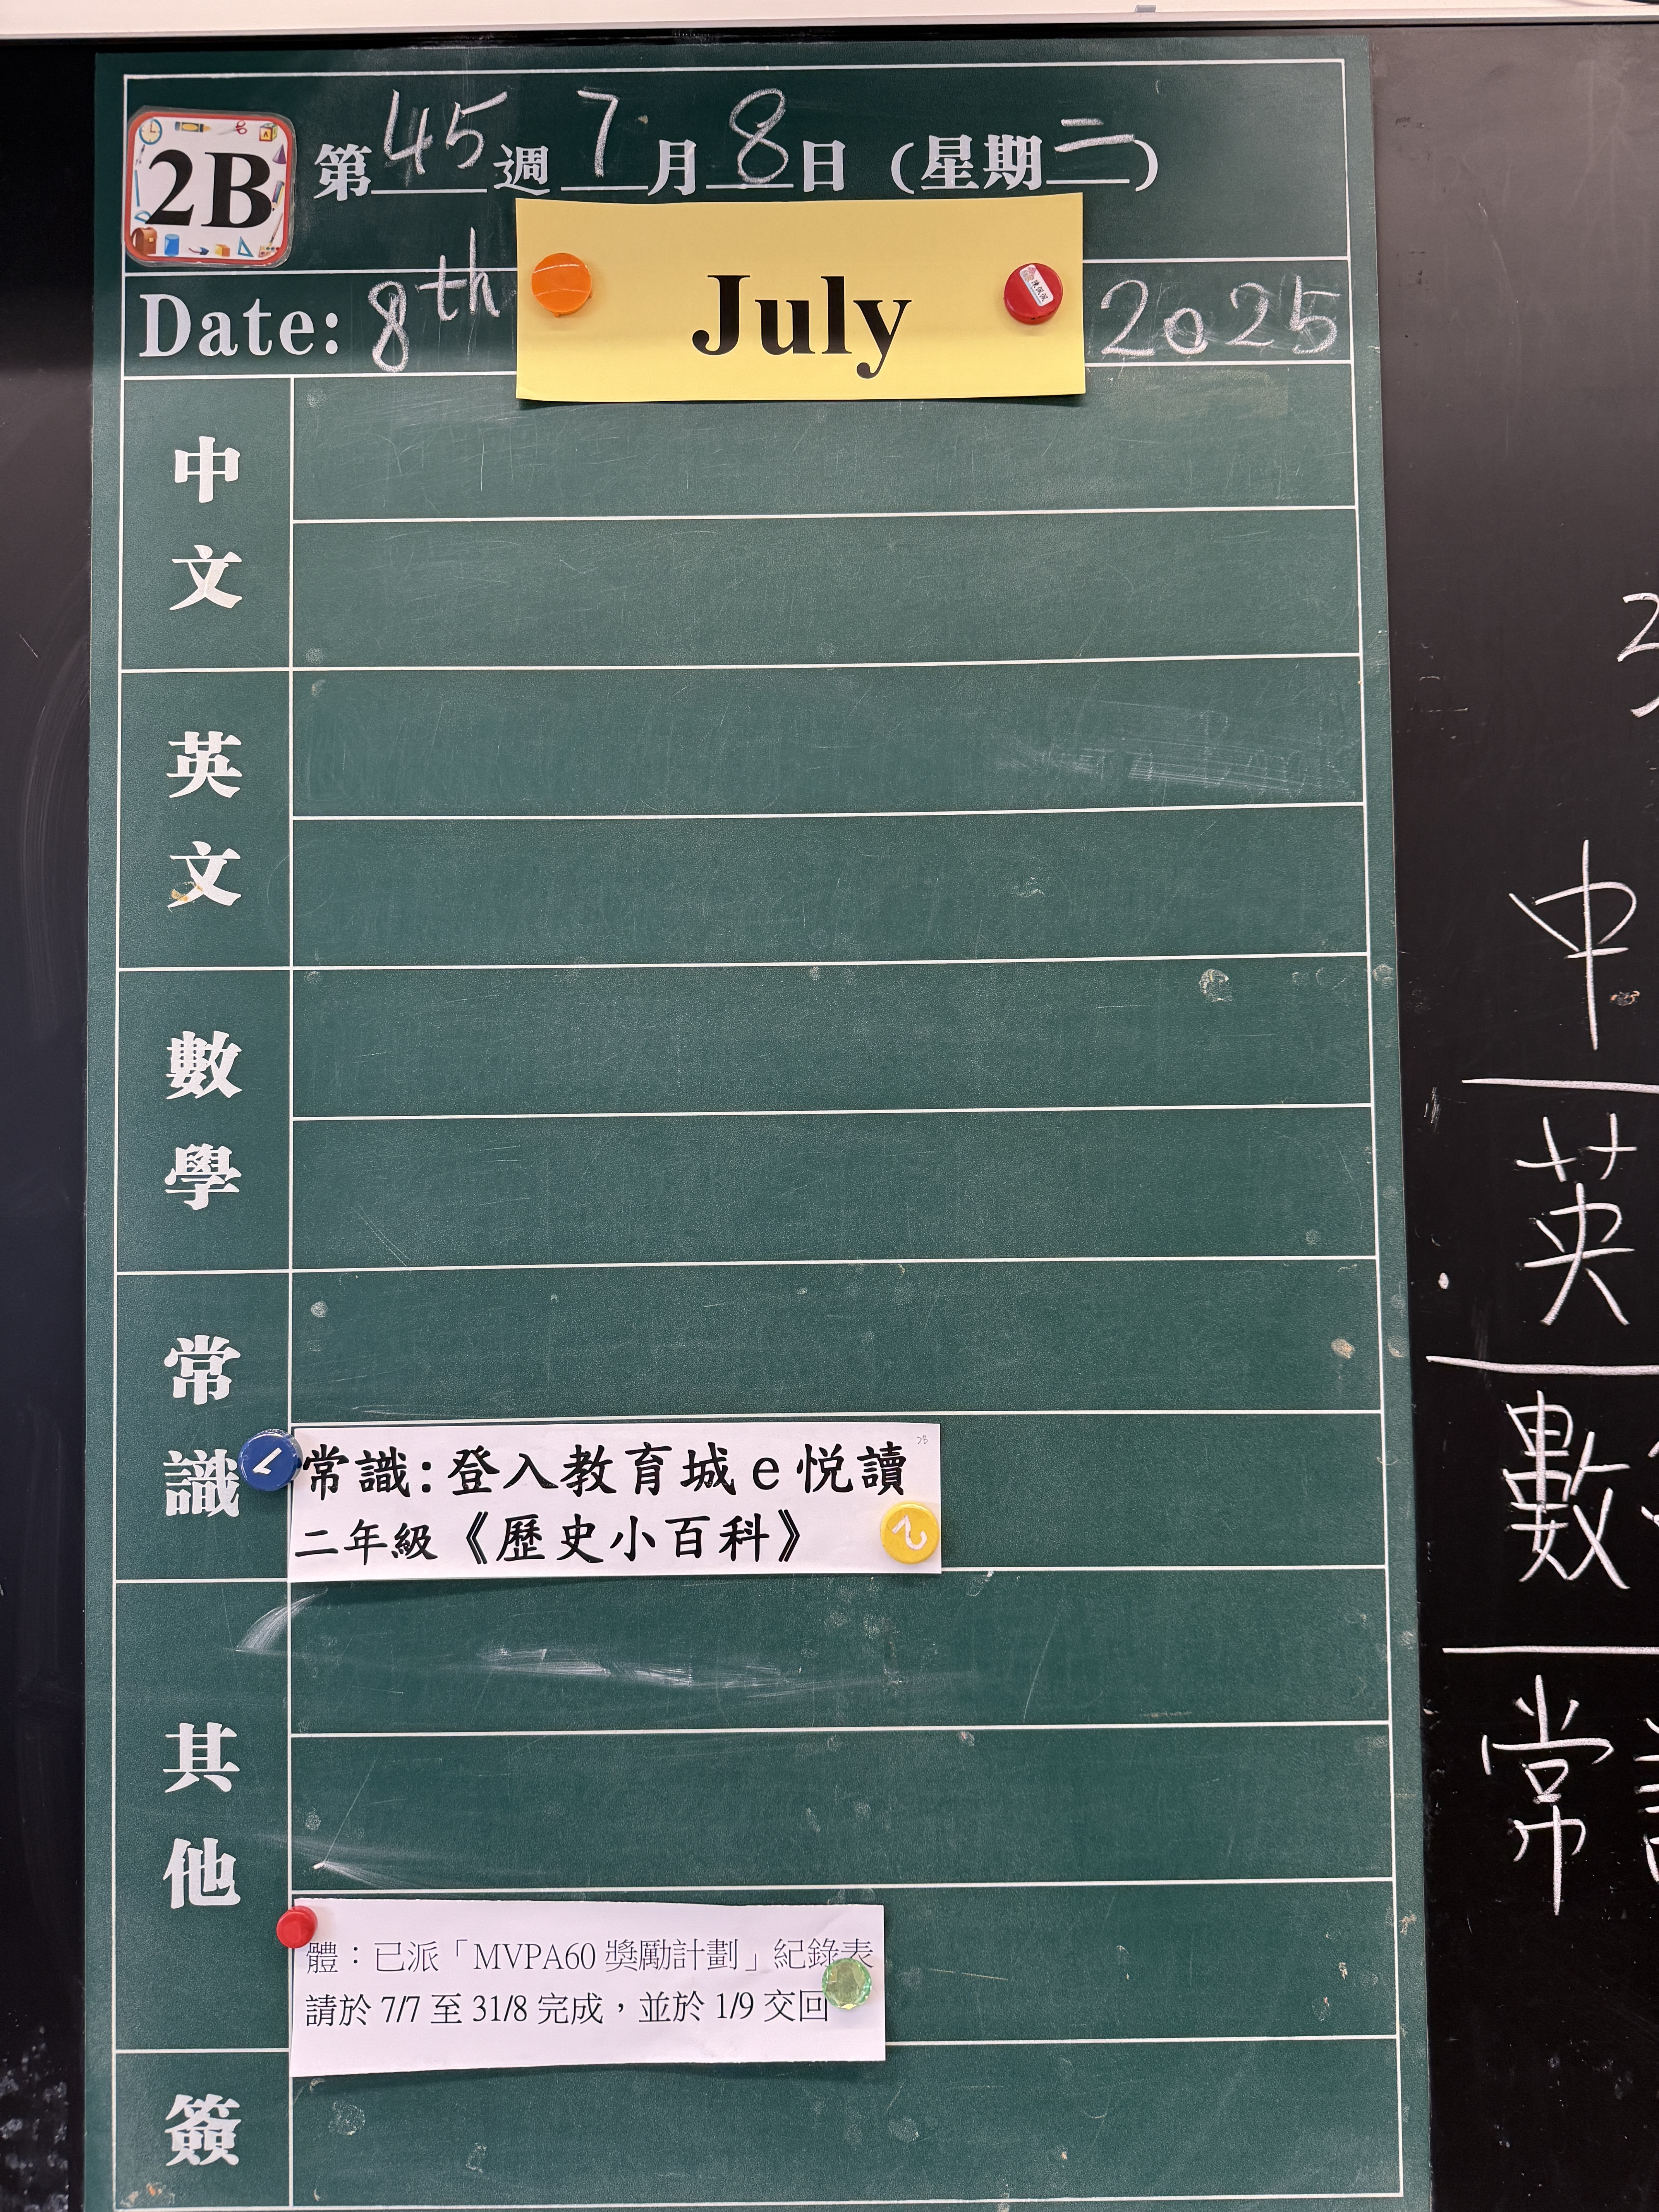 2B
第45週7月8日(星期二)
Date: 8th July 2025
中文
英文
數學
常識
常識:登入教育城e悅讀
二年級《歷史小百科》
其他
體：已派「MVPA60獎勵計劃」紀錄表
請於 7/7 至 31/8 完成，並於 1/9 交回
簽
中
英
數
常